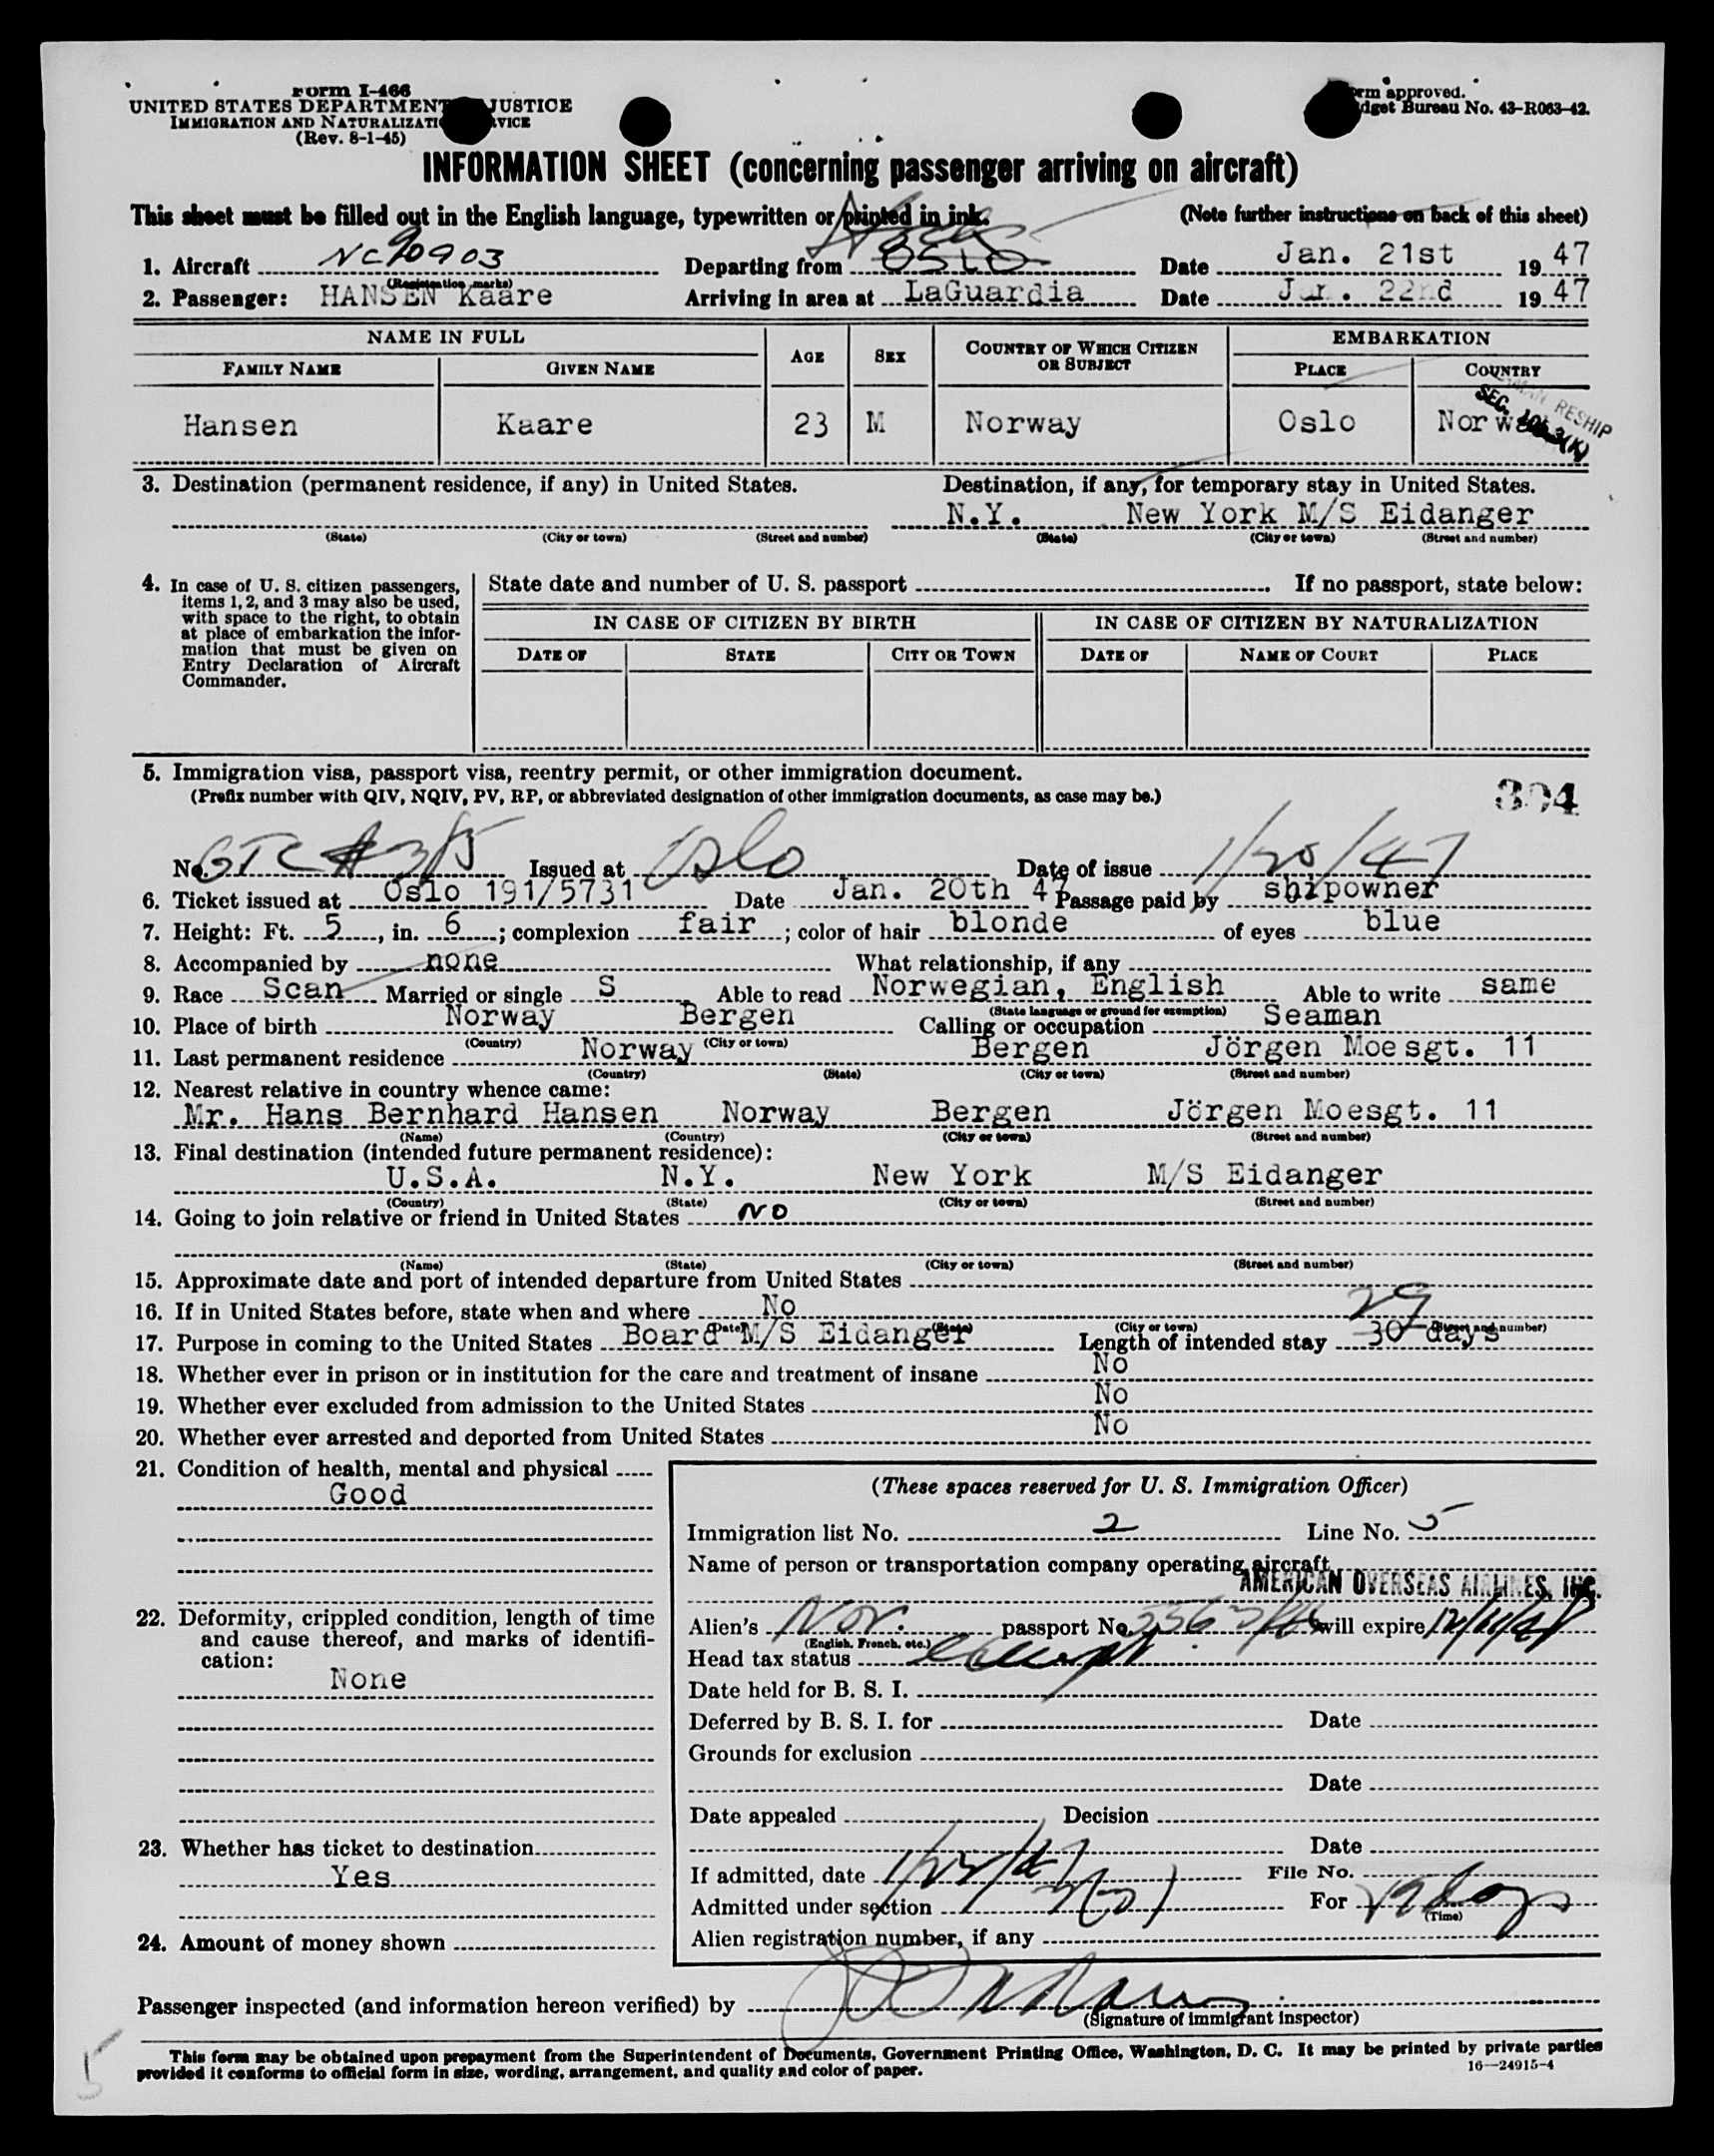 Form I-466
UNITED STATES DEPARTMENT JUSTICE
IMMIGRATION AND NATURALIZATI VICE
(Rev. 8-1-45)
rm approved.
dget Bureau No. 43-R063-42.
INFORMATION SHEET (concerning passenger arriving on aircraft)
This sheet must be filled out in the English language, typewritten or printed in ink. (Note further instructions on back of this sheet)
1. Aircraft NC90903 Departing from OSLO Date Jan. 21st 1947
(Registration marks)
2. Passenger: HANSEN Kaare Arriving in area at LaGuardia Date Jan. 22nd 1947
NAME IN FULL AGE SEX COUNTRY OF WHICH CITIZEN OR SUBJECT EMBARKATION
FAMILY NAME GIVEN NAME PLACE COUNTRY
Hansen Kaare 23 M Norway Oslo Norway
RESHIP
SEC. 3(K)
3. Destination (permanent residence, if any) in United States. Destination, if any, for temporary stay in United States.
N.Y. New York M/S Eidanger
(State) (City or town) (Street and number) (State) (City or town) (Street and number)
4. In case of U. S. citizen passengers, items 1, 2, and 3 may also be used, with space to the right, to obtain at place of embarkation the information that must be given on Entry Declaration of Aircraft Commander.
State date and number of U. S. passport . If no passport, state below:
IN CASE OF CITIZEN BY BIRTH IN CASE OF CITIZEN BY NATURALIZATION
DATE OF STATE CITY OR TOWN DATE OF NAME OF COURT PLACE
5. Immigration visa, passport visa, reentry permit, or other immigration document.
(Prefix number with QIV, NQIV, PV, RP, or abbreviated designation of other immigration documents, as case may be.)
304
No. GTC # 315 Issued at Oslo Date of issue 1/20/47
6. Ticket issued at Oslo 191/5731 Date Jan. 20th 47 Passage paid by shipowner
7. Height: Ft. 5, in. 6; complexion fair; color of hair blonde of eyes blue
8. Accompanied by none What relationship, if any
9. Race Scan Married or single S Able to read Norwegian, English Able to write same
(State language or ground for exemption)
10. Place of birth Norway Bergen Calling or occupation Seaman
(Country) (City or town)
11. Last permanent residence Norway Bergen Jörgen Moesgt. 11
(Country) (State) (City or town) (Street and number)
12. Nearest relative in country whence came:
Mr. Hans Bernhard Hansen Norway Bergen Jörgen Moesgt. 11
(Name) (Country) (City or town) (Street and number)
13. Final destination (intended future permanent residence):
U.S.A. N.Y. New York M/S Eidanger
(Country) (State) (City or town) (Street and number)
14. Going to join relative or friend in United States NO
(Name) (State) (City or town) (Street and number)
15. Approximate date and port of intended departure from United States
16. If in United States before, state when and where No
(Date) (State) (City or town) (Street and number)
29
17. Purpose in coming to the United States Board M/S Eidanger Length of intended stay 30 days
18. Whether ever in prison or in institution for the care and treatment of insane No
19. Whether ever excluded from admission to the United States No
20. Whether ever arrested and deported from United States No
21. Condition of health, mental and physical
Good
22. Deformity, crippled condition, length of time and cause thereof, and marks of identification:
None
23. Whether has ticket to destination
Yes
24. Amount of money shown
(These spaces reserved for U. S. Immigration Officer)
Immigration list No. 2 Line No. 5
Name of person or transportation company operating aircraft
AMERICAN OVERSEAS AIRLINES, INC.
Alien's Nor. passport No. will expire
(English, French, etc.)
Head tax status exempt
Date held for B. S. I.
Deferred by B. S. I. for Date
Grounds for exclusion
Date
Date appealed Decision
Date
If admitted, date 1/22/47 File No.
Admitted under section For 29 days
(Time)
Alien registration number, if any
Passenger inspected (and information hereon verified) by
(Signature of immigrant inspector)
5
This form may be obtained upon prepayment from the Superintendent of Documents, Government Printing Office, Washington, D. C. It may be printed by private parties
provided it conforms to official form in size, wording, arrangement, and quality and color of paper.
16—24915-4